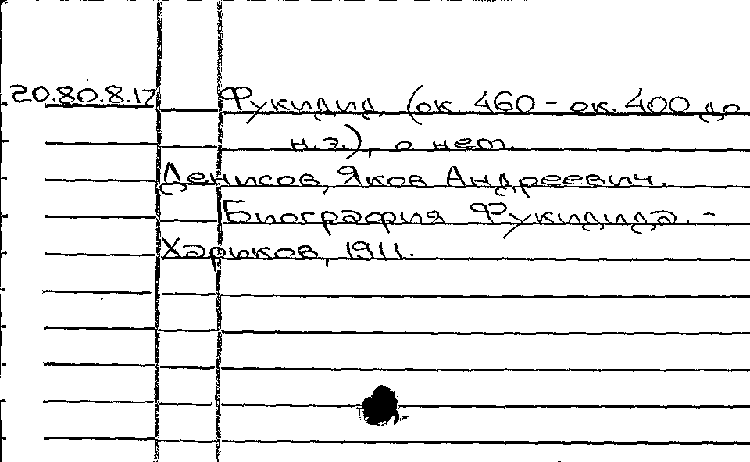 20.80.8.12 Фукидид (ок. 460 - ок. 400 до
н.э.), о нем.
Денисов, Яков Андреевич.
Биография Фукидида. -
Харьков, 1911.